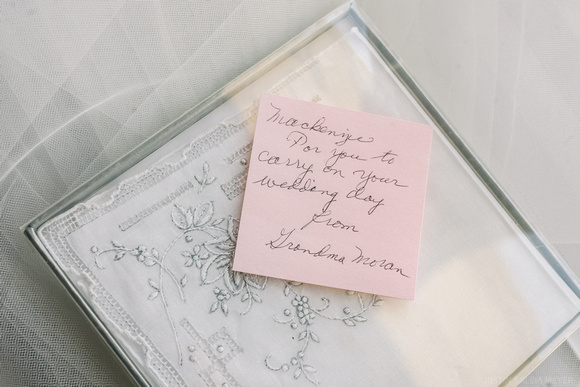 Mackenzie
For you to
carry on your
wedding day
From
Grandma Moran